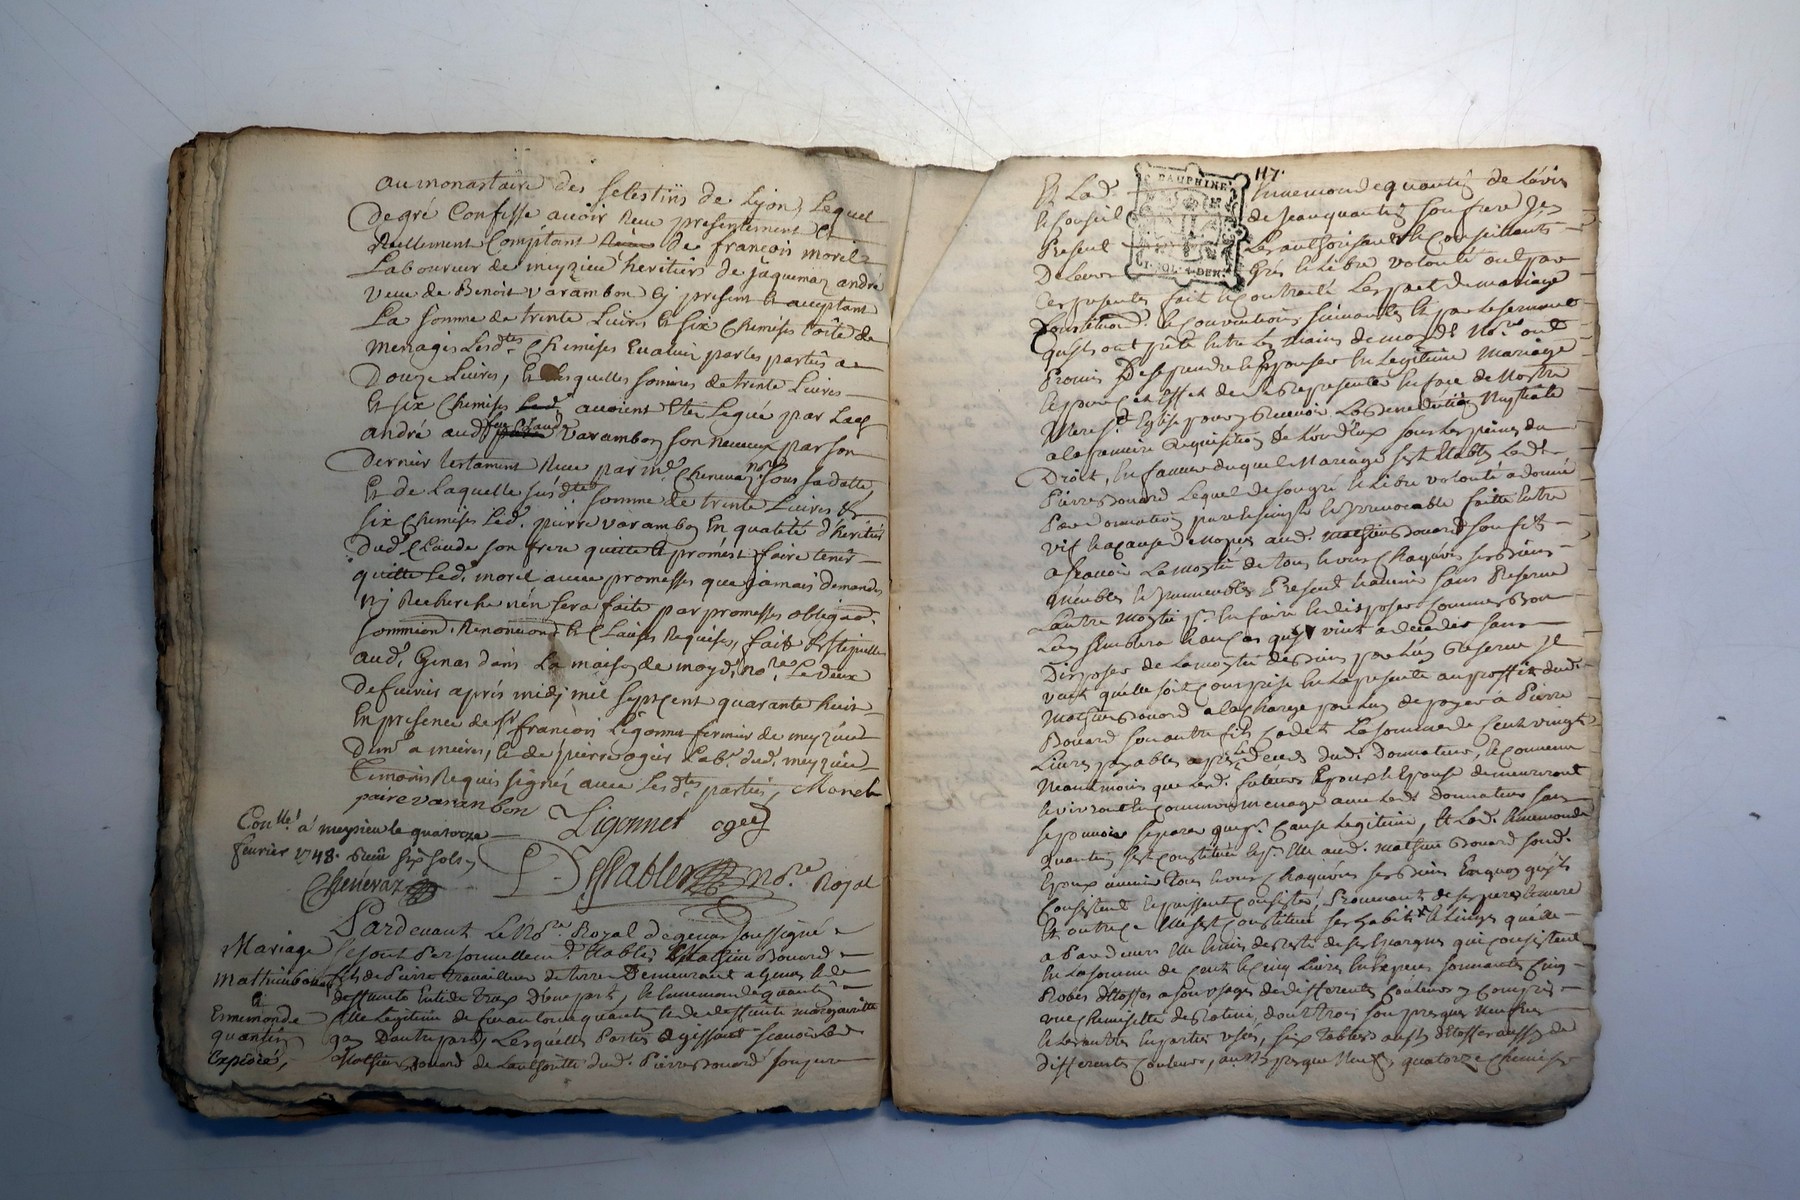 au monastaire des Selestins de Lyon, Lequel
De gré Confesse avoir Reçu presentement et
Réellement Comptant de françois morel
Laboureur de meyzieu heritiers de Jaquemaz andré
veuve de Benoit varambon Cy present et acceptant
La somme de trente Livres et six Chemises toile de
menages Lesd.tes Chemises Evaluées par les parties a
Douze Livres, Lesquelles sommes de trente Livres
et six Chemises avoient été Legué par Lad.
andré aud. feu Claude varambon son neveux par son
Dernier testament Reçu par m.e Chenevaz no.re sous sa datte,
Et de Laquelle susd.te somme de trente Livres &
six Chemises Led. pierre varambon En qualité d'héritier
dud. Claude son frere quitte et promest faire tenir
quitte Led. morel avec promesses que jamais demandes
ny Recherche n'en sera faite par promesses obligaon.
soumission, Renonciaons et Clauses Requises, fait et stipullé
aud. Genas dans La maison de moyd. no.re Le Deux
de fevrier aprés midy mil septcent quarante huit
En presence de Sr françois Ligonnet fermier de meyzieu
Dem.t a mieres, et de pierre ogier Lab.r dud. meyzieu
Temoins Requis signéz avec Les d.tes parties, Morel
paire varambon Ligonnet ogier
Con.llé a meyzieu le quatorze
fevrier 1748. Reçu six sols
Chenevaz Desablex No.re Royal
Pardevant Le No.re Royal de genas soussigné
Mariage se sont Personnellem.t Etablis Mathieu Bouard
Mathieu Bouard fils de Pierre travailleur de terre Demeurant a genas et de
& deffunte D'une part, et Ennemonde quantin
Ennemonde fille Legitime de feu antoine quantin et de deffunte margueritte
quantin D'autre part, Lesquelles Parties agissant scavoir Led.
Expédié, Mathieu Bouard de L'authorité dud. Pierre Bouard son pere
117.
DAUPHINE
Et Lad. Ennemonde quantin de L'avis
et Conseil de Jean quantin son frere Icy
Present Les authorisants et Conseillants
De Leur Grés et Libre volonté ont par
Ces presentes fait et Contracté Les pact de mariage
Donations et Conventions suivantes et par le serment
qu'ils ont preté Entre Les mains de moyd. No.re ont
Promis De se prendre et Epouser En Legitime Mariage
et pour cet Effet de se Representer En face de Nostre
Mere S.te Eglise pour y Recevoir La Benediction Nuptiale
a la premiere Requisition de L'un D'eux sous Les peines du
Droit, En faveur duquel Mariage s'est Etably Led.
Pierre Bouard Lequel de son gré et Libre volonté a donné
Par donnation pure et simple et irrevocable faitte Entre
vifs a cause de Nopces aud. Mathieu Bouard son fils
a scavoir La moytié de tous et uns Chaquuns ses Biens
Meubles et Immeubles Present et avenir sans Reserve
L'autre moytié pr. En faire et disposer comme Bon
Luy Semblera et au Cas qu'il vint a deceder sans
Disposer de La moytié des Biens par Luy Reservé Il
veut qu'elle soit Comprise En La presente au proffit dud.
Mathieu Bouard a la Charge par Luy de payer a Pierre
Bouard son autre fils Cadet La somme de Cent vingt
Livres payables aprés Le Deces dud. Donnateur, et Convenu
Neantmoins que Lesd. futeurs Epoux et Epouse demeureront
et vivront En Commun menage avec Led. Donnateur sans
se pouvoir separer que pr. Cause Legitime, Et Lad. Ennemonde
quantin s'est Constituée aud. Mathieu Bouard son d.
Epoux avenir tous et uns Chaquuns ses Biens En quoy qu'ils
Consistent et puissent Consister, Provenant de ses pere et mere
Et outre ce Elle s'est Constitué ses habits et Linges qu'elle
a Pardevers Elle de ses Epargnes qui Consistent
En La somme de Cent et Cinq Livres En Especes sonnantes Cinq
Robes d'Etoffes a son usages de differentes Couleurs y Compris
une Chemisette de Ratine, dont trois sont presques Neufves
et Les autres En parties usées, six Tabliers aussy d'Etoffe aussy de
differentes Couleurs, aussy presque Neufs, quatorze Chemises